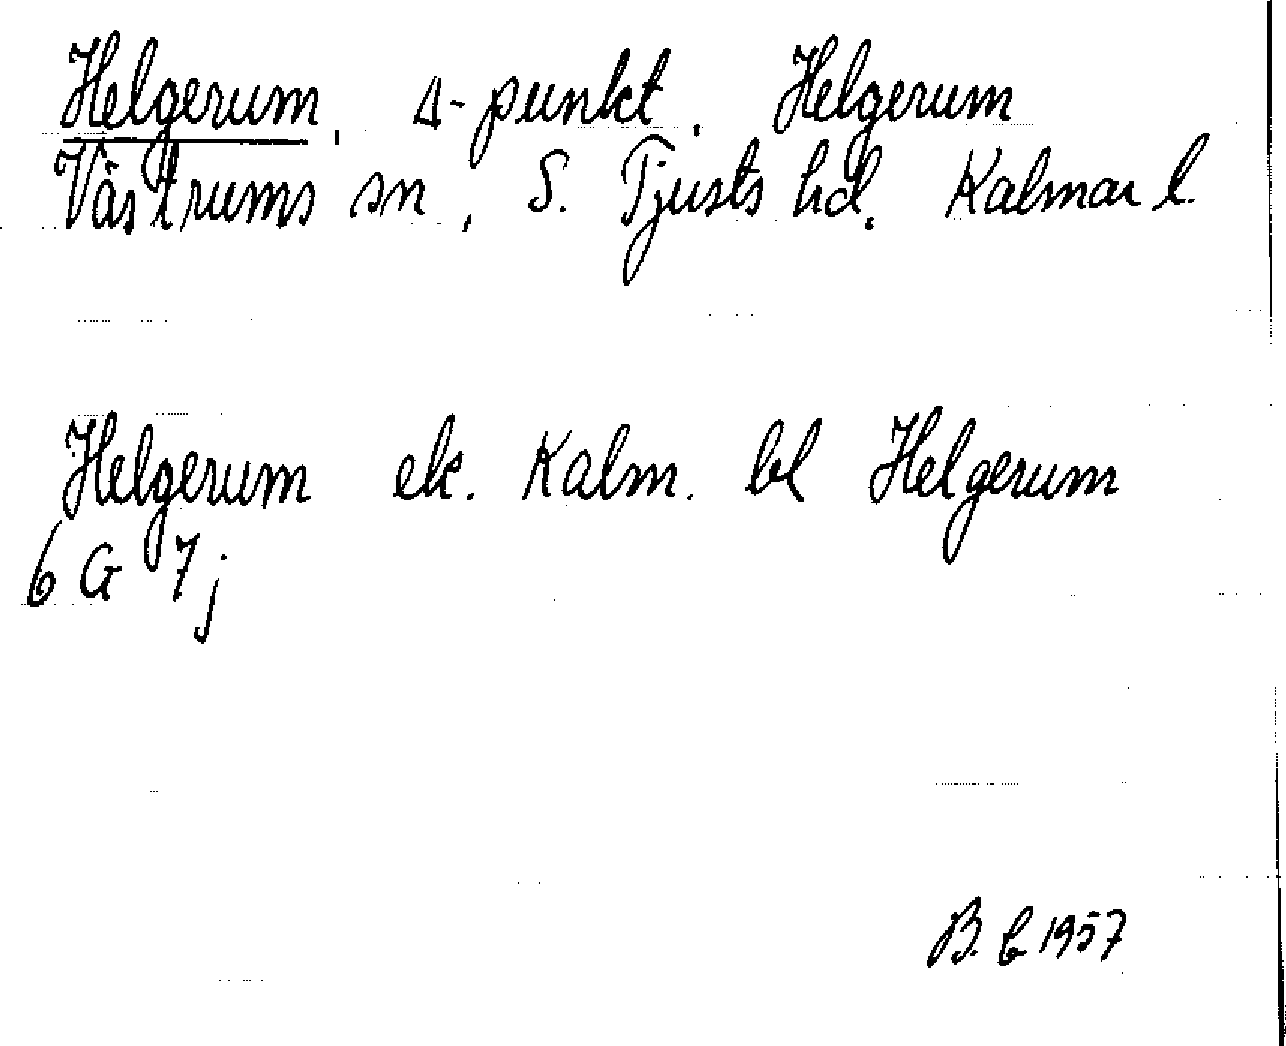 Helgerum, Δ-punkt. Helgerum
Västrums sn, S. Tjusts hd. Kalmar l.
Helgerum ek. Kalm. bl Helgerum
6 G 7j
B. E 1957